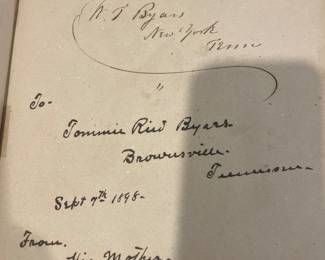 N. T. Byars
New York
Tenn
"
To-
Tommie Ried Byars-
Brownsville-
Tennessee-
Sept 7th 1898-
From,
His Mother-